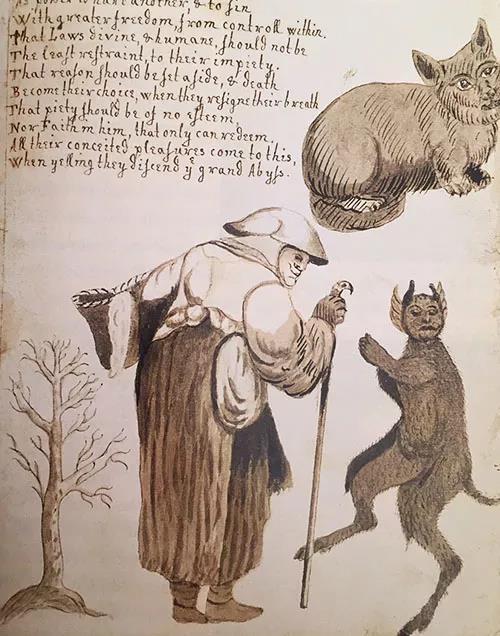 As power to hurt another, & to sin
With greater freedom from controll within.
That Laws divine, & humane, should not be
The least restraint, to their impiety.
That reason should be set aside, & death
Become their choice, when they resigne their breath
That piety should be of no esteem,
Nor Faith in him, that only can redeem
All their conceited pleasures come to this,
When yelling they discend yᵉ grand Abyss.